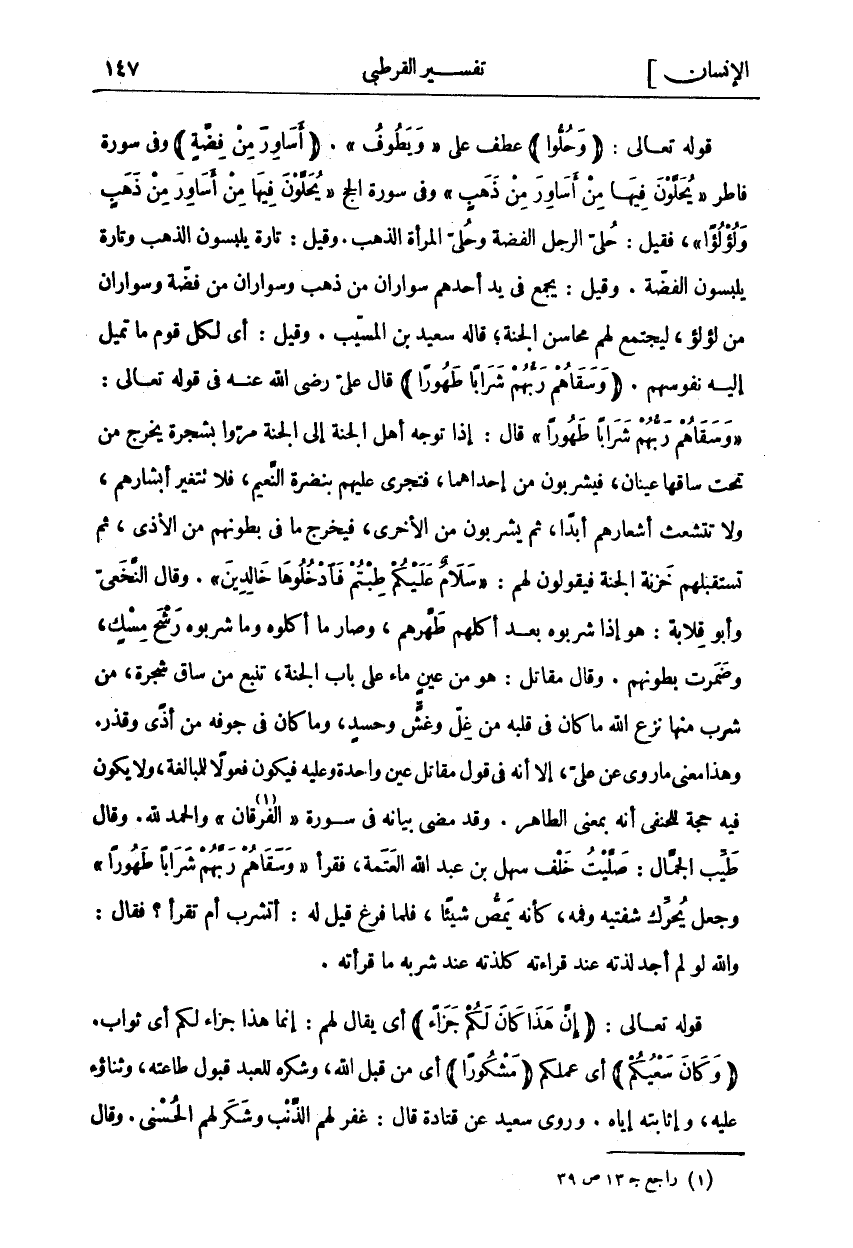 الإنسان ] تفسير القرطبى ١٤٧
قوله تعالى : ﴿ وَحُلُّوا ﴾ عطف على « وَيَطُوفُ » . ﴿ أَسَاوِرَ مِنْ فِضَّةٍ ﴾ وفى سورة
فاطر « يُحَلَّوْنَ فِيهَا مِنْ أَسَاوِرَ مِنْ ذَهَبٍ » وفى سورة الحج « يُحَلَّوْنَ فِيهَا مِنْ أَسَاوِرَ مِنْ ذَهَبٍ
وَلُؤْلُؤًا» ، فقيل : حُلىّ الرجل الفضة وحُلىّ المرأة الذهب . وقيل : تارة يلبسون الذهب وتارة
يلبسون الفضّة . وقيل : يجمع فى يد أحدهم سواران من ذهب وسواران من فضّة وسواران
من لؤلؤ ، ليجتمع لهم محاسن الجنة؛ قاله سعيد بن المسيّب . وقيل : أى لكل قوم ما تميل
إليه نفوسهم . ﴿ وَسَقَاهُمْ رَبُّهُمْ شَرَابًا طَهُورًا ﴾ قال علىّ رضى الله عنه فى قوله تعالى :
«وَسَقَاهُمْ رَبُّهُمْ شَرَابًا طَهُورًا » قال : إذا توجه أهل الجنة إلى الجنة مرّوا بشجرة يخرج من
تحت ساقها عينان ، فيشربون من إحداهما ، فتجرى عليهم بنضرة النَّعيم ، فلا تتغير أبشارهم ،
ولا تتشعث أشعارهم أبدًا ، ثم يشربون من الأخرى ، فيخرج ما فى بطونهم من الأذى ، ثم
تستقبلهم خَزنة الجنة فيقولون لهم : «سَلَامٌ عَلَيْكُمْ طِبْتُمْ فَآدْخُلُوهَا خَالِدِينَ» . وقال النَّخَعىّ
وأبو قِلابة : هو إذا شربوه بعد أكلهم طَهَّرهم ، وصار ما أكلوه وما شربوه رَشْحَ مِسْكٍ ،
وضَمَرت بطونهم . وقال مقاتل : هو من عينِ ماء على باب الجنة ، تنبع من ساق شجرة ، من
شرب منها نزع الله ما كان فى قلبه من غِلّ وغشّ وحسدٍ ، وما كان فى جوفه من أذًى وقذر.
وهذا معنى ما روى عن علىّ ، إلا أنه فى قول مقاتل عين واحدة وعليه فيكون فعولًا للبالغة ، ولا يكون
فيه حجة للحنفى أنه بمعنى الطاهر . وقد مضى بيانه فى سورة « الفُرقان »(١) والحمد لله . وقال
طَيِّب الجَمَّال : صَلَّيْتُ خَلْف سهل بن عبد الله العَتَمة ، فقرأ « وَسَقَاهُمْ رَبُّهُمْ شَرَابًا طَهُورًا »
وجعل يُحرِّك شفتيه وفمه ، كأنه يَمصُّ شيئًا ، فلما فرغ قيل له : أتشرب أم تقرأ ؟ فقال :
والله لو لم أجد لذته عند قراءته كلذته عند شربه ما قرأته .
قوله تعالى : ﴿ إِنَّ هَذَا كَانَ لَكُمْ جَزَاءً ﴾ أى يقال لهم : إنما هذا جزاء لكم أى ثواب.
﴿ وَكَانَ سَعْيُكُمْ ﴾ أى عملكم ﴿ مَشْكُورًا ﴾ أى من قبل الله ، وشكره للعبد قبول طاعته ، وثناؤه
عليه ، وإثابته إياه . وروى سعيد عن قتادة قال : غفر لهم الذَّنْب وشَكَر لهم الحُسْنى . وقال
(١) راجع جـ ١٣ ص ٣٩